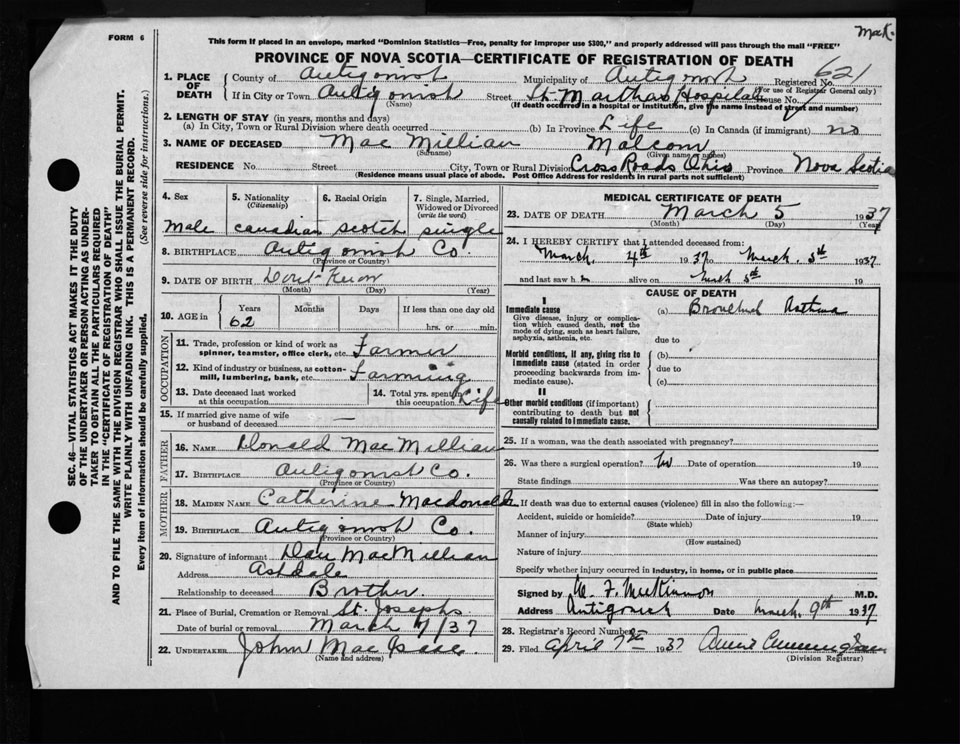 FORM 6
Mack.
This form if placed in an envelope, marked "Dominion Statistics—Free, penalty for improper use $300," and properly addressed will pass through the mail "FREE"
PROVINCE OF NOVA SCOTIA—CERTIFICATE OF REGISTRATION OF DEATH
1. PLACE OF DEATH County of Antigonish Municipality of Antigonish Registered No. 621
(For use of Registrar General only)
If in City or Town Antigonish Street St. Marthas Hospital House No.
(Name) (If death occurred in a hospital or institution, give the name instead of street and number)
2. LENGTH OF STAY (in years, months and days)
(a) In City, Town or Rural Division where death occurred (b) In Province Life (c) In Canada (if immigrant) no
3. NAME OF DECEASED Mac Millian Malcom
(Surname) (Given name or names)
RESIDENCE No. Street City, Town or Rural Division Cross Roads Ohio Province Nova Scotia
(Residence means usual place of abode. Post Office Address for residents in rural parts not sufficient)
4. Sex 5. Nationality (Citizenship) 6. Racial Origin 7. Single, Married, Widowed or Divorced (write the word)
Male canadian scotch single
8. BIRTHPLACE Antigonish Co.
(Province or Country)
9. DATE OF BIRTH Dont Know
(Month) (Day) (Year)
10. AGE in Years Months Days If less than one day old
62 hrs. or min.
OCCUPATION
11. Trade, profession or kind of work as spinner, teamster, office clerk, etc. Farmer
12. Kind of industry or business, as cotton-mill, lumbering, bank, etc. Farming
13. Date deceased last worked at this occupation 14. Total yrs. spent in this occupation Life
15. If married give name of wife or husband of deceased —
FATHER
16. NAME Donald Mac Millian
17. BIRTHPLACE Antigonish Co.
(Province or Country)
MOTHER
18. MAIDEN NAME Catherine Macdonald
19. BIRTHPLACE Antigonish Co.
(Province or Country)
20. Signature of informant Dan MacMillian
Address Ashdale
Relationship to deceased Brother
21. Place of Burial, Cremation or Removal St. Josephs
Date of burial or removal March 7/37
22. UNDERTAKER John Mac Isaac
(Name and address)
MEDICAL CERTIFICATE OF DEATH
23. DATE OF DEATH March 5 1937
(Month) (Day) (Year)
24. I HEREBY CERTIFY that I attended deceased from:
March. 4th 1937 to March. 5th 1937
and last saw h alive on March 5th 19
CAUSE OF DEATH
I
Immediate cause (a) Bronchial Astma
Give disease, injury or complication which caused death, not the mode of dying, such as heart failure, asphyxia, asthenia, etc.
due to
Morbid conditions, if any, giving rise to immediate cause (stated in order proceeding backwards from immediate cause).
(b)
due to
(c)
II
Other morbid conditions (if important) contributing to death but not causally related to immediate cause.
25. If a woman, was the death associated with pregnancy?
26. Was there a surgical operation? No Date of operation 19
State findings Was there an autopsy?
27. If death was due to external causes (violence) fill in also the following:—
Accident, suicide or homicide? Date of injury 19
(State which)
Manner of injury
(How sustained)
Nature of injury
Specify whether injury occurred in industry, in home, or in public place
Signed by W. F. McKinnon M.D.
Address Antigonish Date March. 9th 1937
28. Registrar's Record Number
29. Filed April 7th 1937 Annie Cunningham
(Division Registrar)
SEC. 46—VITAL STATISTICS ACT MAKES IT THE DUTY
OF THE UNDERTAKER OR PERSON ACTING AS UNDER-
TAKER TO OBTAIN ALL THE PARTICULARS REQUIRED
IN THE "CERTIFICATE OF REGISTRATION OF DEATH"
AND TO FILE THE SAME WITH THE DIVISION REGISTRAR WHO SHALL ISSUE THE BURIAL PERMIT.
WRITE PLAINLY WITH UNFADING INK. THIS IS A PERMANENT RECORD.
Every item of information should be carefully supplied. (See reverse side for instructions.)